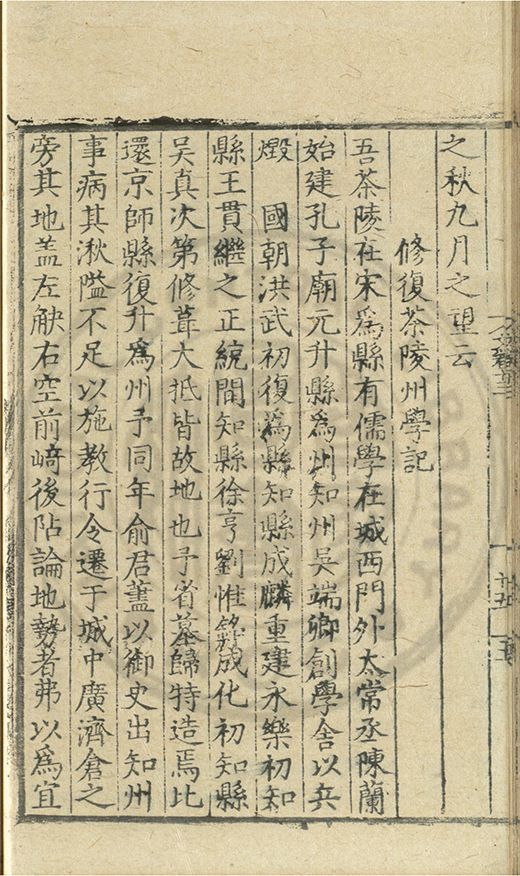 之秋九月之望云
修復茶陵州學記
吾茶陵在宋爲縣有儒學在城西門外太常丞陳蘭
始建孔子廟元升縣爲州知州吳端卿創學舍以兵
燬 國朝洪武初復爲縣知縣成麟重建永樂初知
縣王貫繼之正統間知縣徐亨劉惟成化初知縣
吳真次第修葺大抵皆故地也予省墓歸特造焉比
還京師縣復升爲州予同年俞君藎以御史出知州
事病其湫隘不足以施教行令遷于城中廣濟倉之
旁其地盖左觖右空前﨑後阽論地勢者弗以爲宜